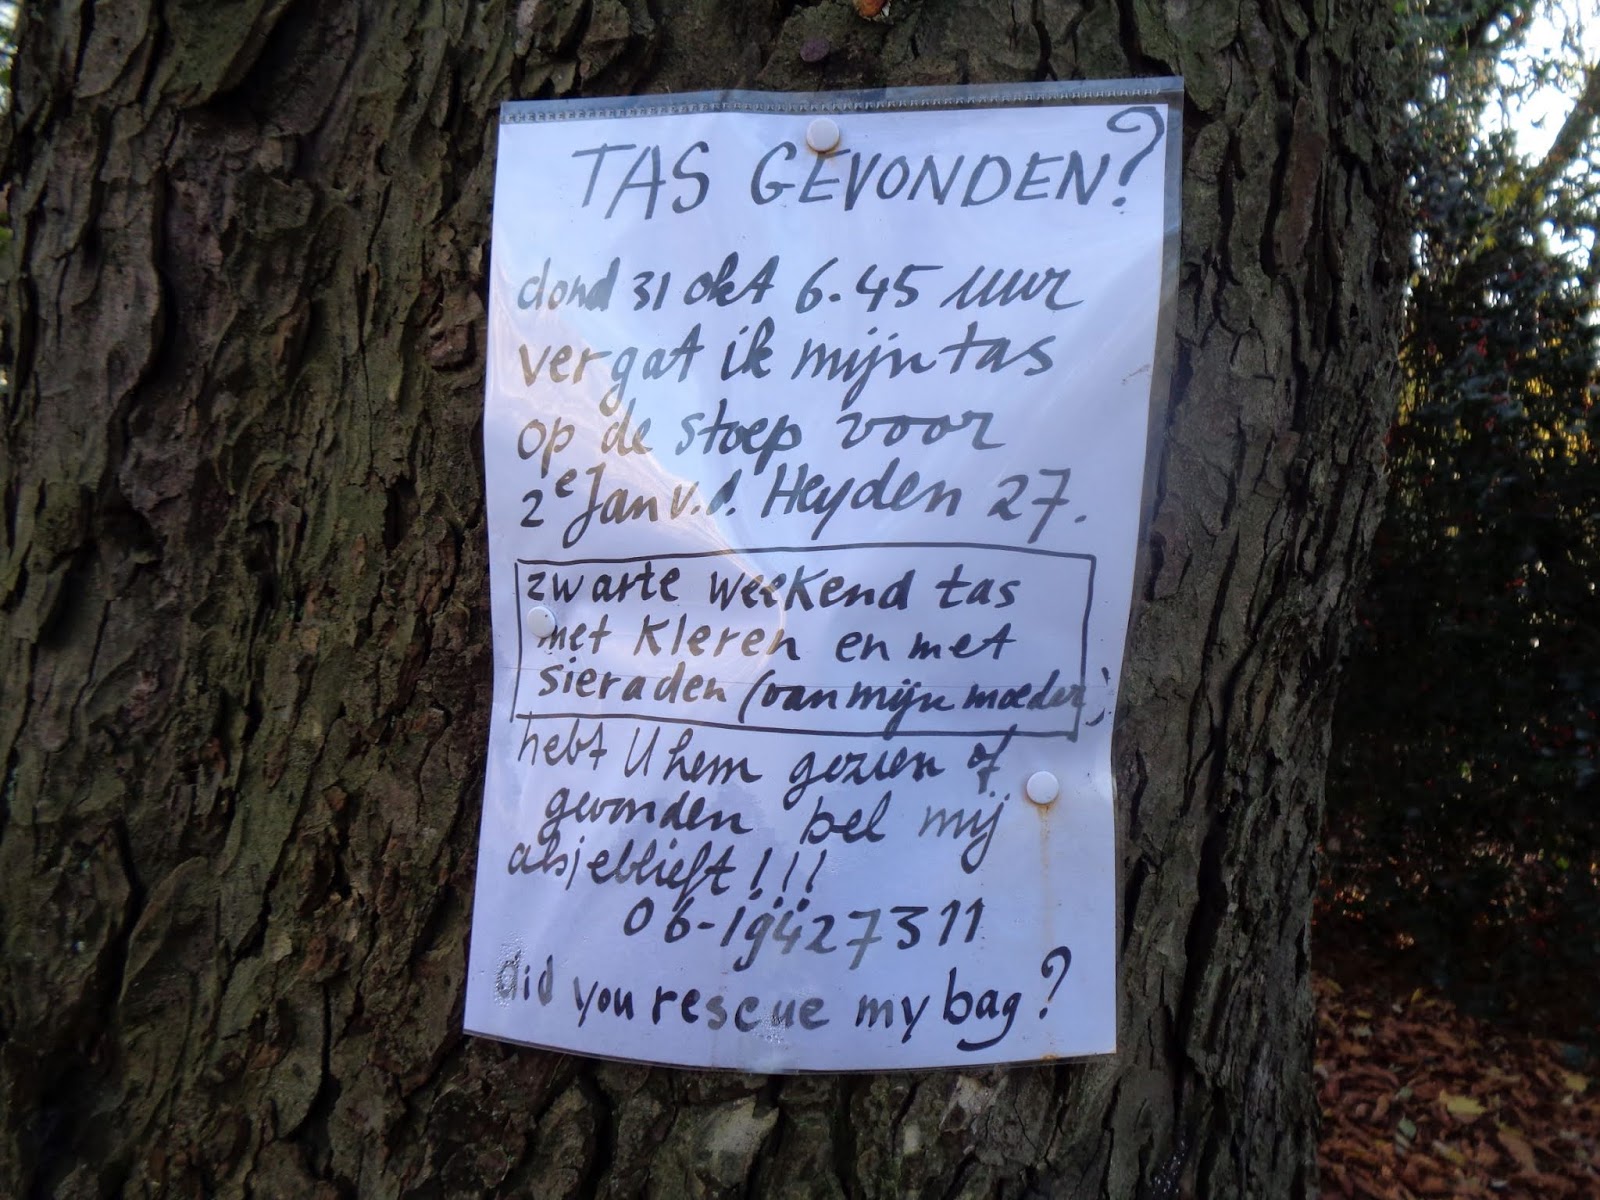 TAS GEVONDEN?
dond 31 okt 6.45 uur
vergat ik mijn tas
op de stoep voor
2e Jan v.d. Heyden 27.
zwarte weekend tas
met kleren en met
sieraden (van mijn moeder)
hebt U hem gezien of
gevonden bel mij
alsjeblieft!!!
06-19427311
did you rescue my bag?